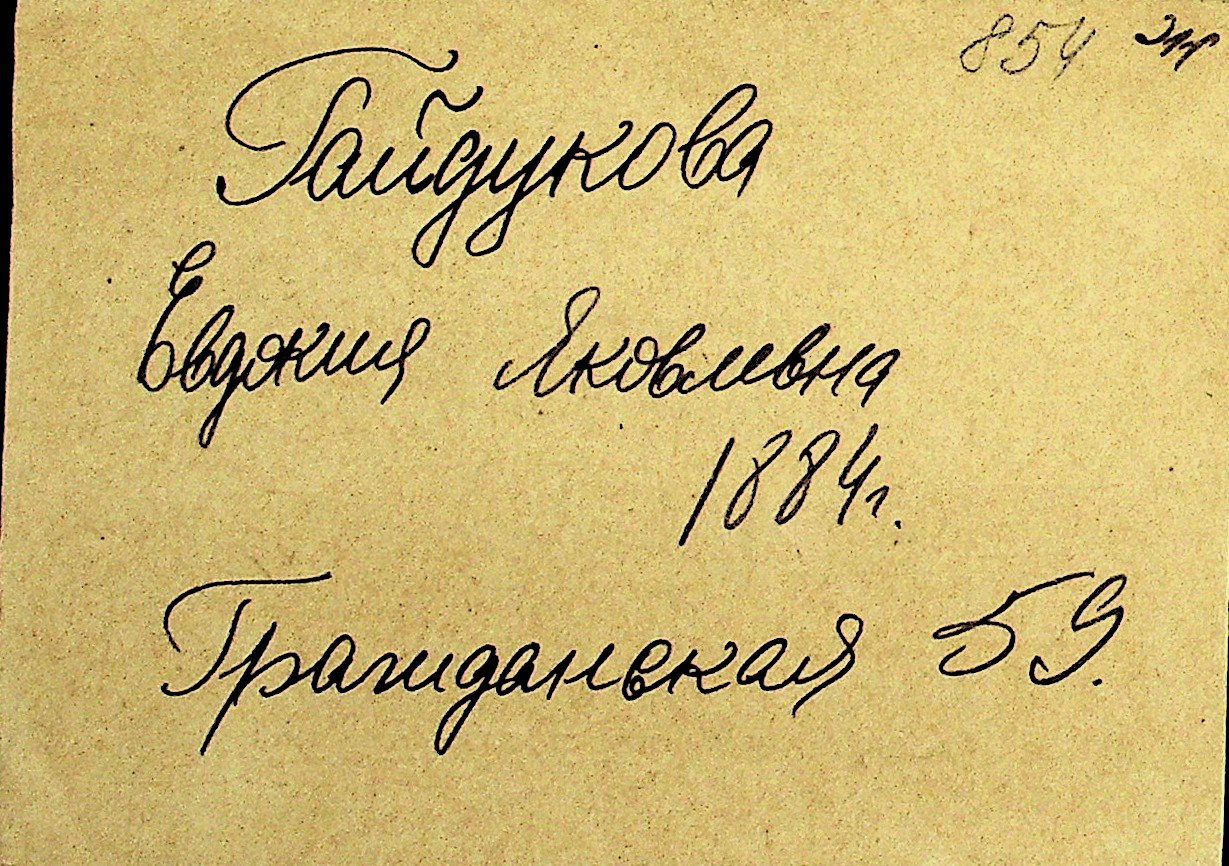 854
Гайдукова
Евдокия Яковлевна
1884г.
Гражданская 59.